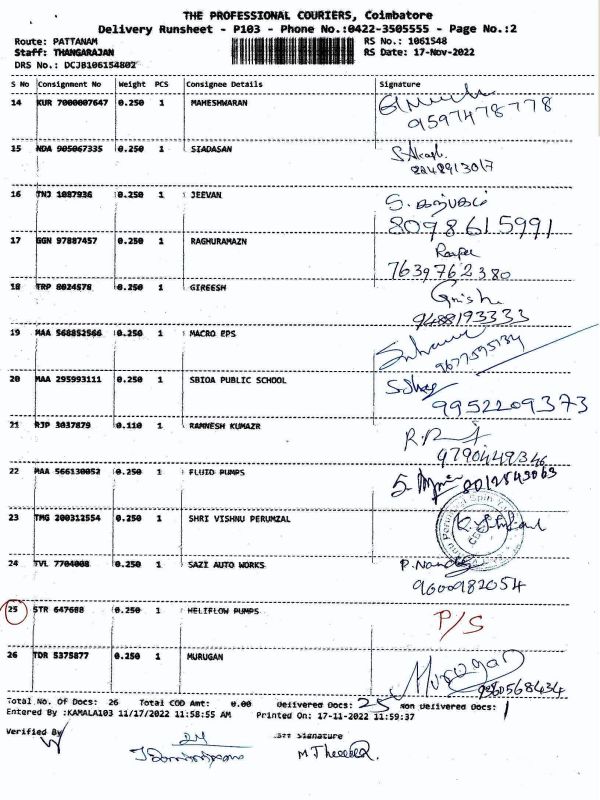 THE PROFESSIONAL COURIERS, Coimbatore
Delivery Runsheet - P103 - Phone No.:0422-3505555 - Page No.:2
Route: PATTANAM RS No.: 1061548
Staff: THANGARAJAN RS Date: 17-Nov-2022
DRS No.: DCJB106154802
S No Consignment No Weight PCS Consignee Details Signature
14 KUR 7000007647 0.250 1 MAHESHWARAN
9597478778
15 NDA 905067335 0.250 1 SIADASAN
16 TNJ 1087936 0.250 1 JEEVAN S.
8098615991
17 GGN 97887457 0.250 1 RAGHURAMAZN
7639762380
18 TRP 8024578 0.250 1 GIREESH Girish
9488193333
19 MAA 568852566 0.250 1 MACRO EPS
9677595134
20 MAA 295993111 0.250 1 SBIOA PUBLIC SCHOOL
9952209373
21 RJP 3037879 0.110 1 RAMNESH KUMAZR
9790449346
22 MAA 566130052 0.250 1 FLUID PUMPS
23 TMG 200312554 0.250 1 SHRI VISHNU PERUMZAL
24 TVL 7704008 0.250 1 SAZI AUTO WORKS P.
9600982054
25 STR 647688 0.250 1 HELIFLOW PUMPS P/S
26 TDR 5375877 0.250 1 MURUGAN Murugan
9360568434
Total No. Of Docs: 26 Total COD Amt: 0.00 Delivered Docs: 25 Non Delivered Docs: 1
Entered By :KAMALA103 11/17/2022 11:58:55 AM Printed On: 17-11-2022 11:59:37
Verified By Signature